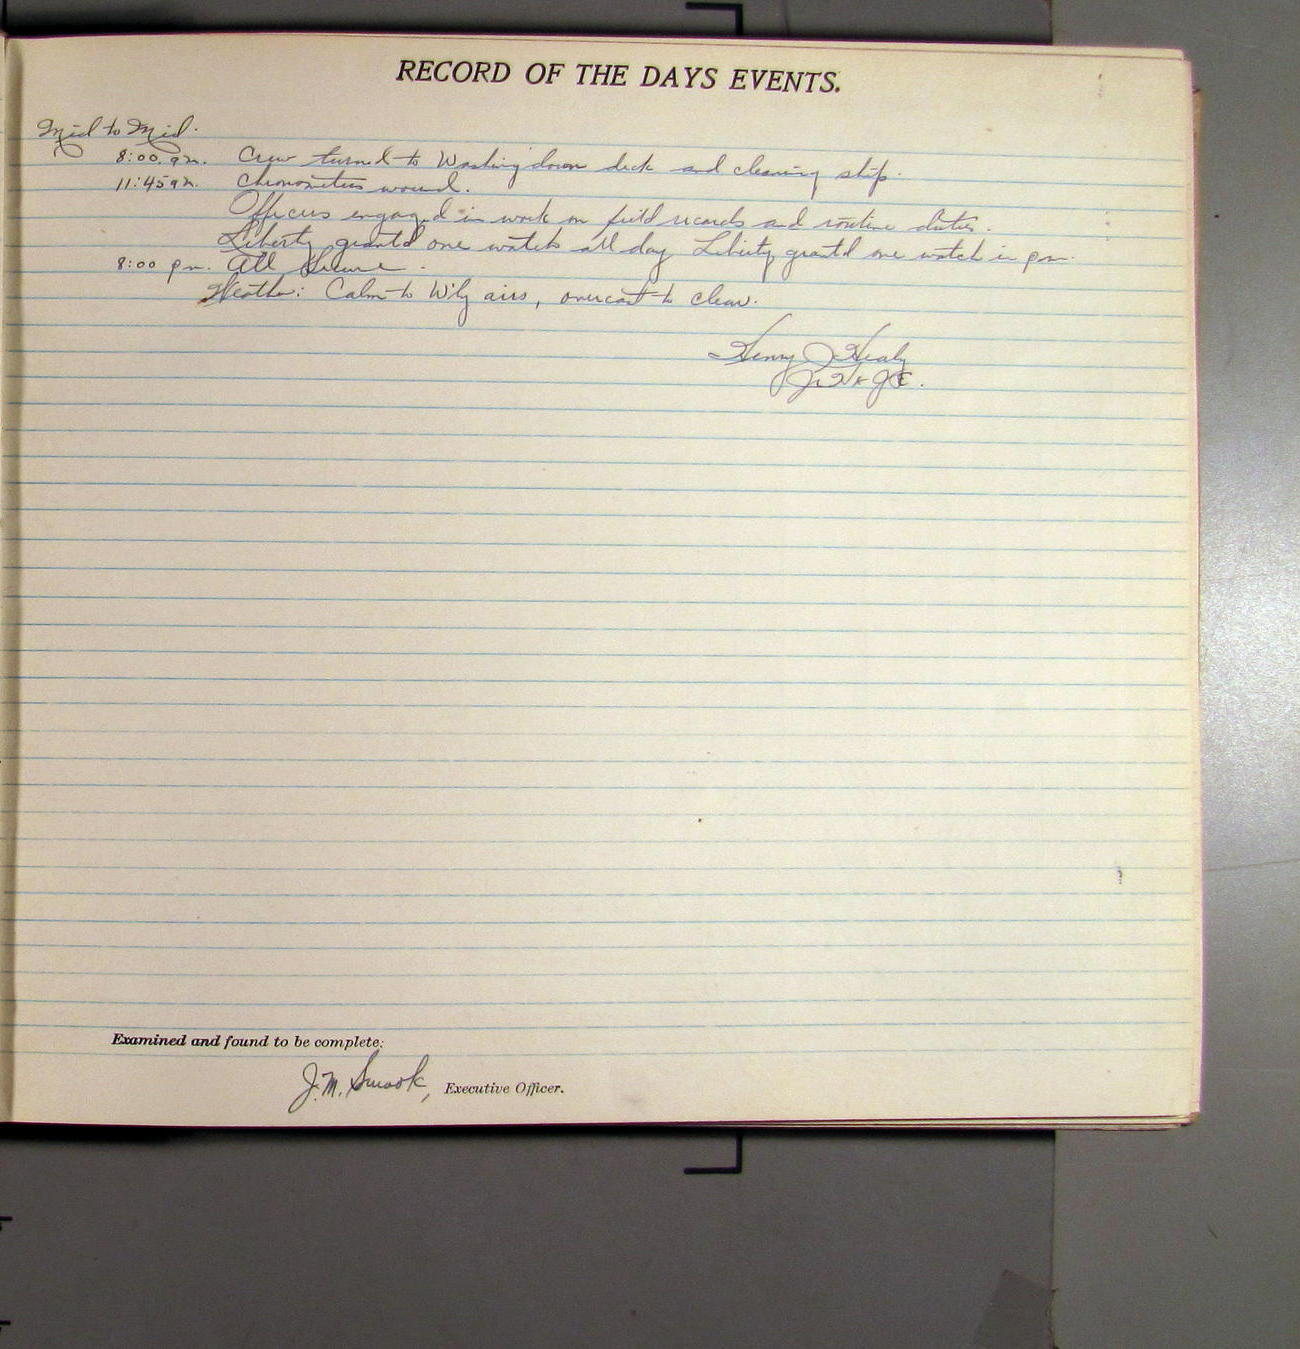 RECORD OF THE DAYS EVENTS.
Mid to Mid.
8:00. am. Crew turned to Washing down deck and cleaning ship.
11:45 am. Chronometers wound.
Officers engaged in work on field records and routine duties.
Liberty grantd one watch all day Liberty grantd one watch in pm.
8:00 pm. All Secure.
Weather: Calm to W'ly airs, overcast to clear.
Henry J. Healy
Jr. H & G E.
Examined and found to be complete:
J. M. Smook, Executive Officer.